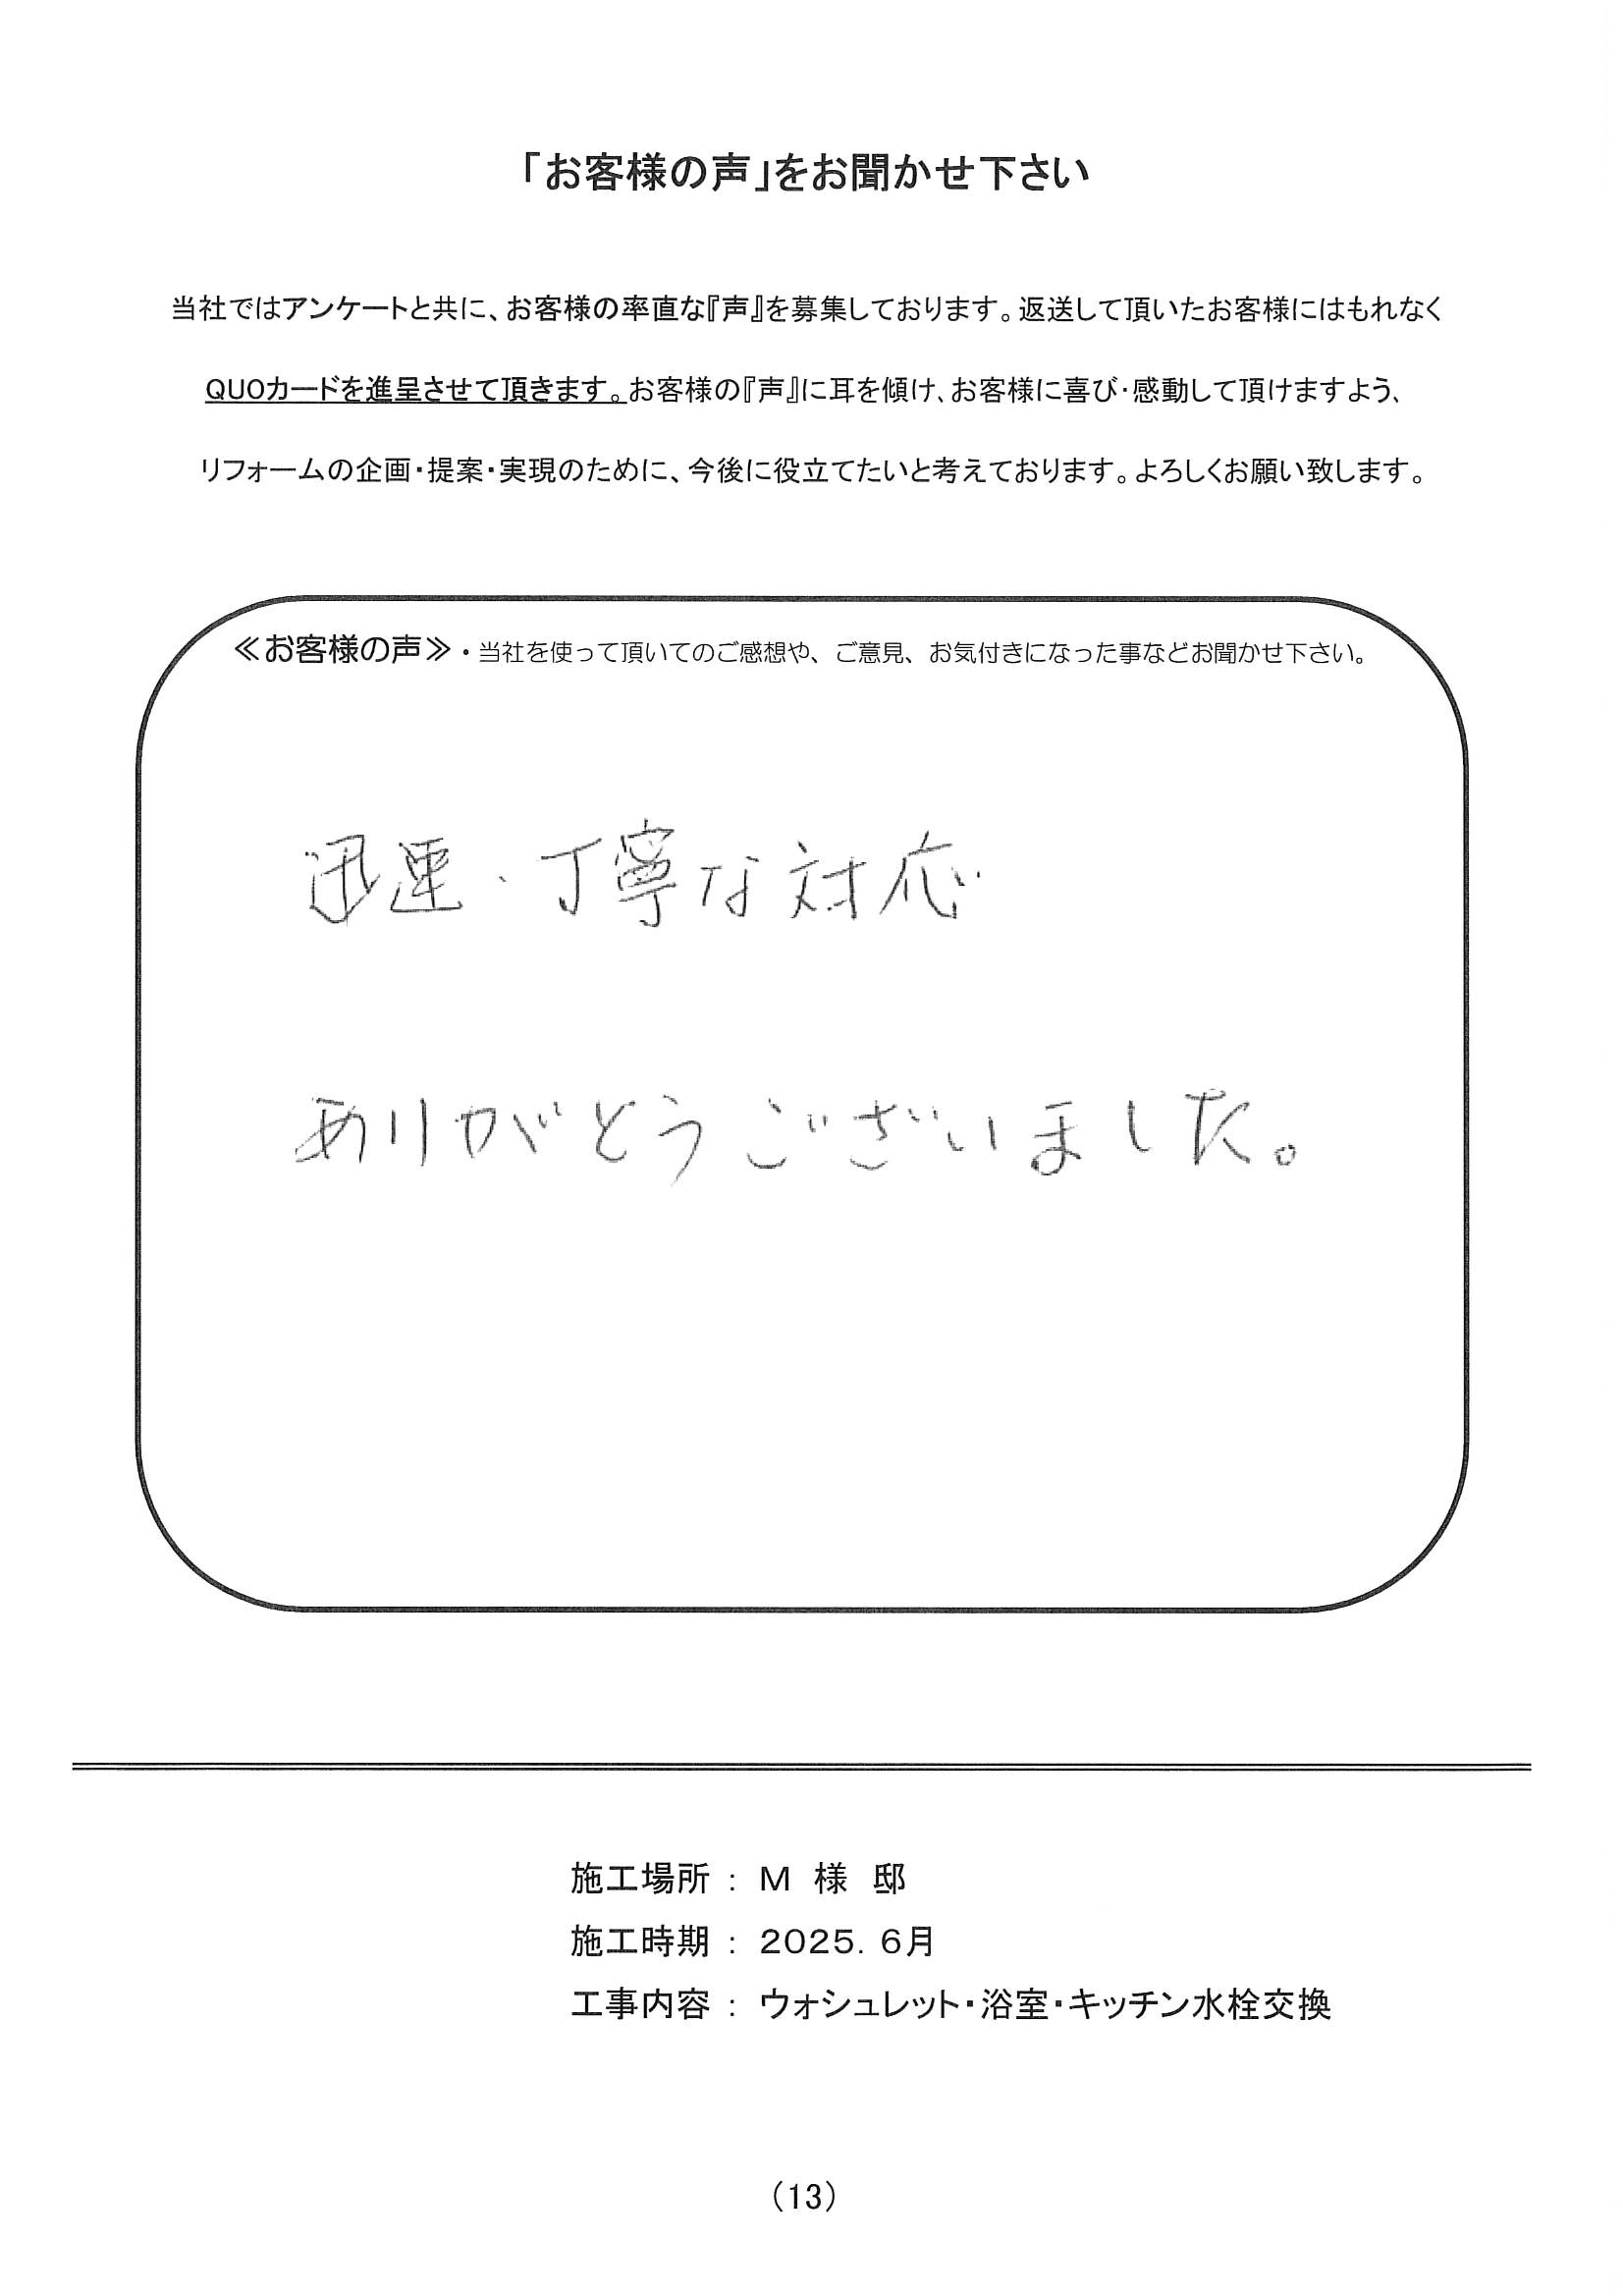 「お客様の声」をお聞かせ下さい
当社ではアンケートと共に、お客様の率直な『声』を募集しております。返送して頂いたお客様にはもれなく
QUOカードを進呈させて頂きます。お客様の『声』に耳を傾け、お客様に喜び・感動して頂けますよう、
リフォームの企画・提案・実現のために、今後に役立てたいと考えております。よろしくお願い致します。
≪お客様の声≫・当社を使って頂いてのご感想や、ご意見、お気付きになった事などお聞かせ下さい。
迅速・丁寧な対応
ありがとうございました。
施工場所 : M 様 邸
施工時期 : 2025. 6月
工事内容 : ウォシュレット・浴室・キッチン水栓交換
(13)